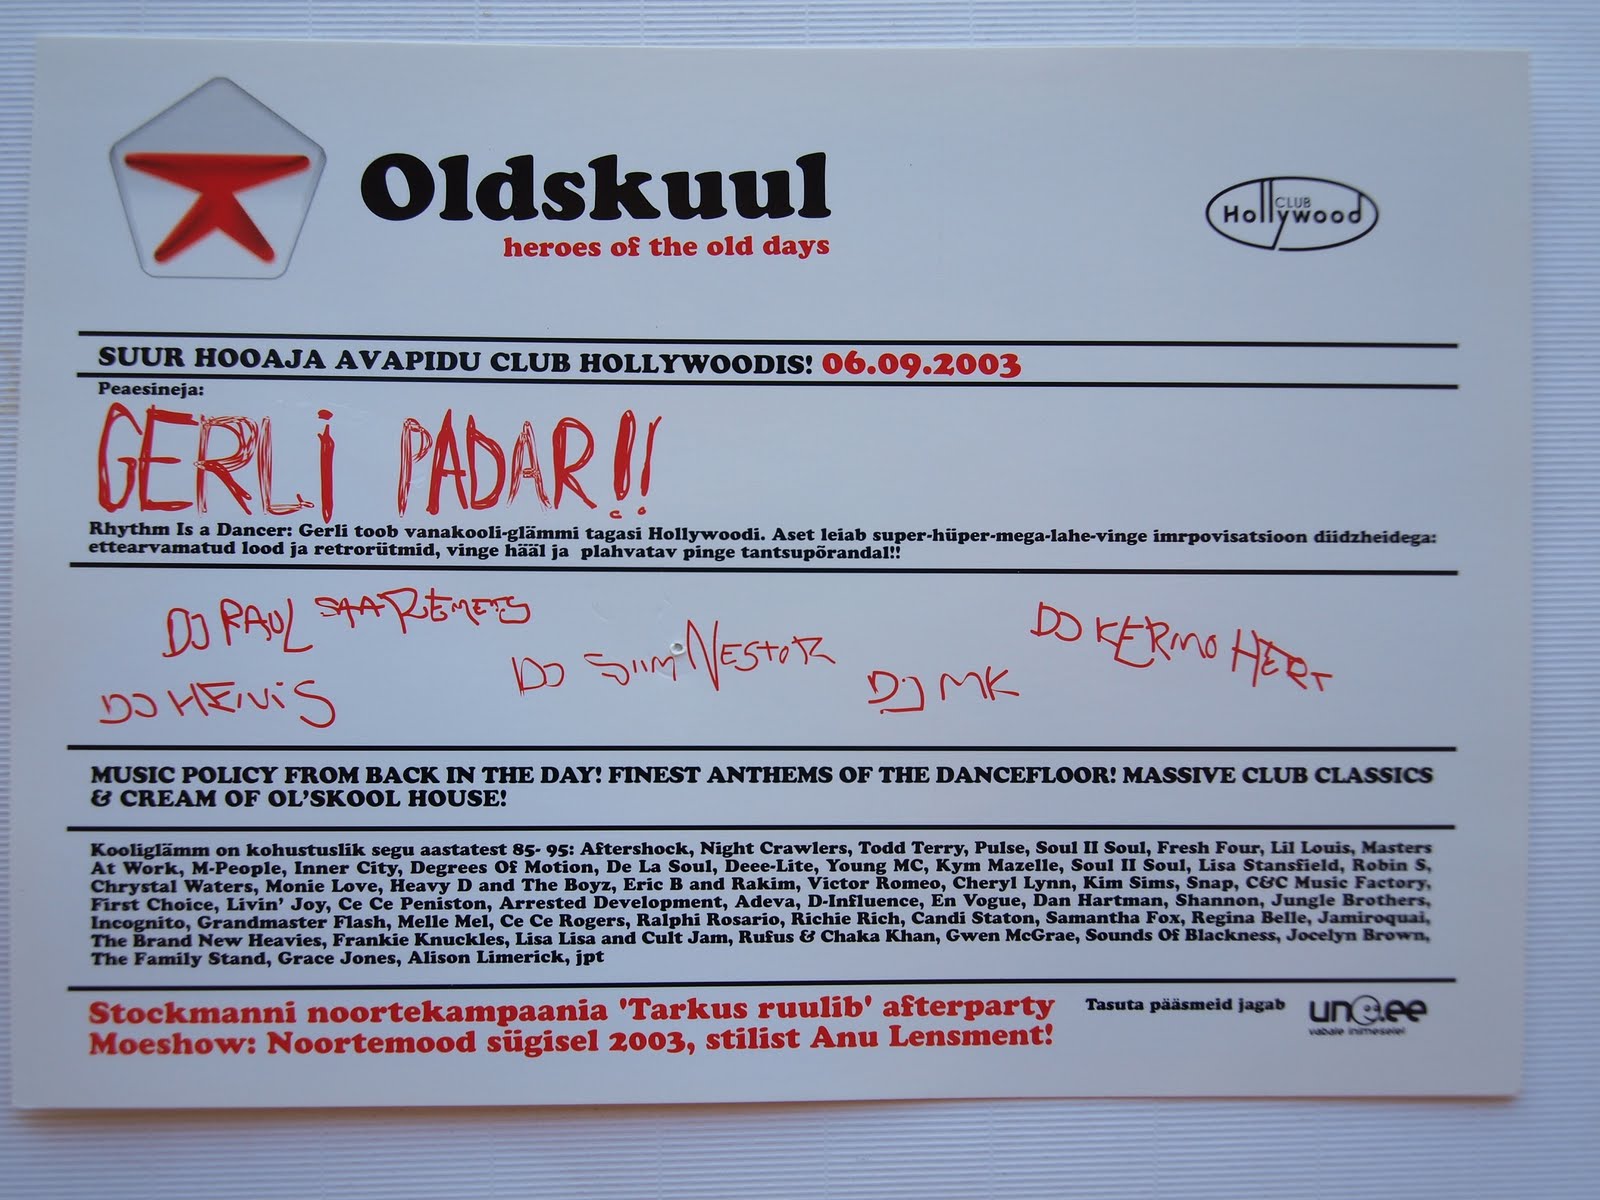 Oldskuul
heroes of the old days
CLUB
Hollywood
SUUR HOOAJA AVAPIDU CLUB HOLLYWOODIS! 06.09.2003
Peaesineja:
GERLI PADAR!!
Rhythm Is a Dancer: Gerli toob vanakooli-glämmi tagasi Hollywoodi. Aset leiab super-hüper-mega-lahe-vinge imrpovisatsioon diidzheidega:
ettearvamatud lood ja retrorütmid, vinge hääl ja plahvatav pinge tantsupõrandal!!
DJ RAUL SAAREMETS
DJ HEIVIS
DJ SIIM NESTOR
DJ MK
DJ KERMO HERT
MUSIC POLICY FROM BACK IN THE DAY! FINEST ANTHEMS OF THE DANCEFLOOR! MASSIVE CLUB CLASSICS
& CREAM OF OL'SKOOL HOUSE!
Kooliglämm on kohustuslik segu aastatest 85- 95: Aftershock, Night Crawlers, Todd Terry, Pulse, Soul II Soul, Fresh Four, Lil Louis, Masters
At Work, M-People, Inner City, Degrees Of Motion, De La Soul, Deee-Lite, Young MC, Kym Mazelle, Soul II Soul, Lisa Stansfield, Robin S,
Chrystal Waters, Monie Love, Heavy D and The Boyz, Eric B and Rakim, Victor Romeo, Cheryl Lynn, Kim Sims, Snap, C&C Music Factory,
First Choice, Livin' Joy, Ce Ce Peniston, Arrested Development, Adeva, D-Influence, En Vogue, Dan Hartman, Shannon, Jungle Brothers,
Incognito, Grandmaster Flash, Melle Mel, Ce Ce Rogers, Ralphi Rosario, Richie Rich, Candi Staton, Samantha Fox, Regina Belle, Jamiroquai,
The Brand New Heavies, Frankie Knuckles, Lisa Lisa and Cult Jam, Rufus & Chaka Khan, Gwen McGrae, Sounds Of Blackness, Jocelyn Brown,
The Family Stand, Grace Jones, Alison Limerick, jpt
Stockmanni noortekampaania 'Tarkus ruulib' afterparty
Moeshow: Noortemood sügisel 2003, stilist Anu Lensment!
Tasuta pääsmeid jagab
vabale inimesele!